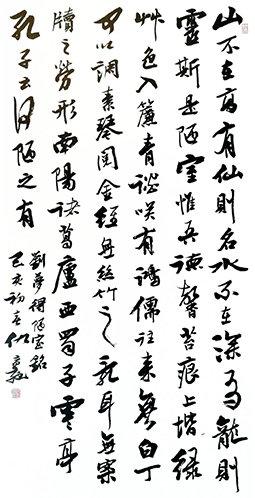 山不在高有仙則名水不在深有龍則
靈斯是陋室惟吾德馨苔痕上堦緑
艸色入簾青談咲有鴻儒往来無白丁
可以調素琴閲金經無絲竹之乱耳無案
牘之勞形南陽諸葛廬西蜀子雲亭
孔子云何陋之有
劉夢得陋室銘
己亥初春